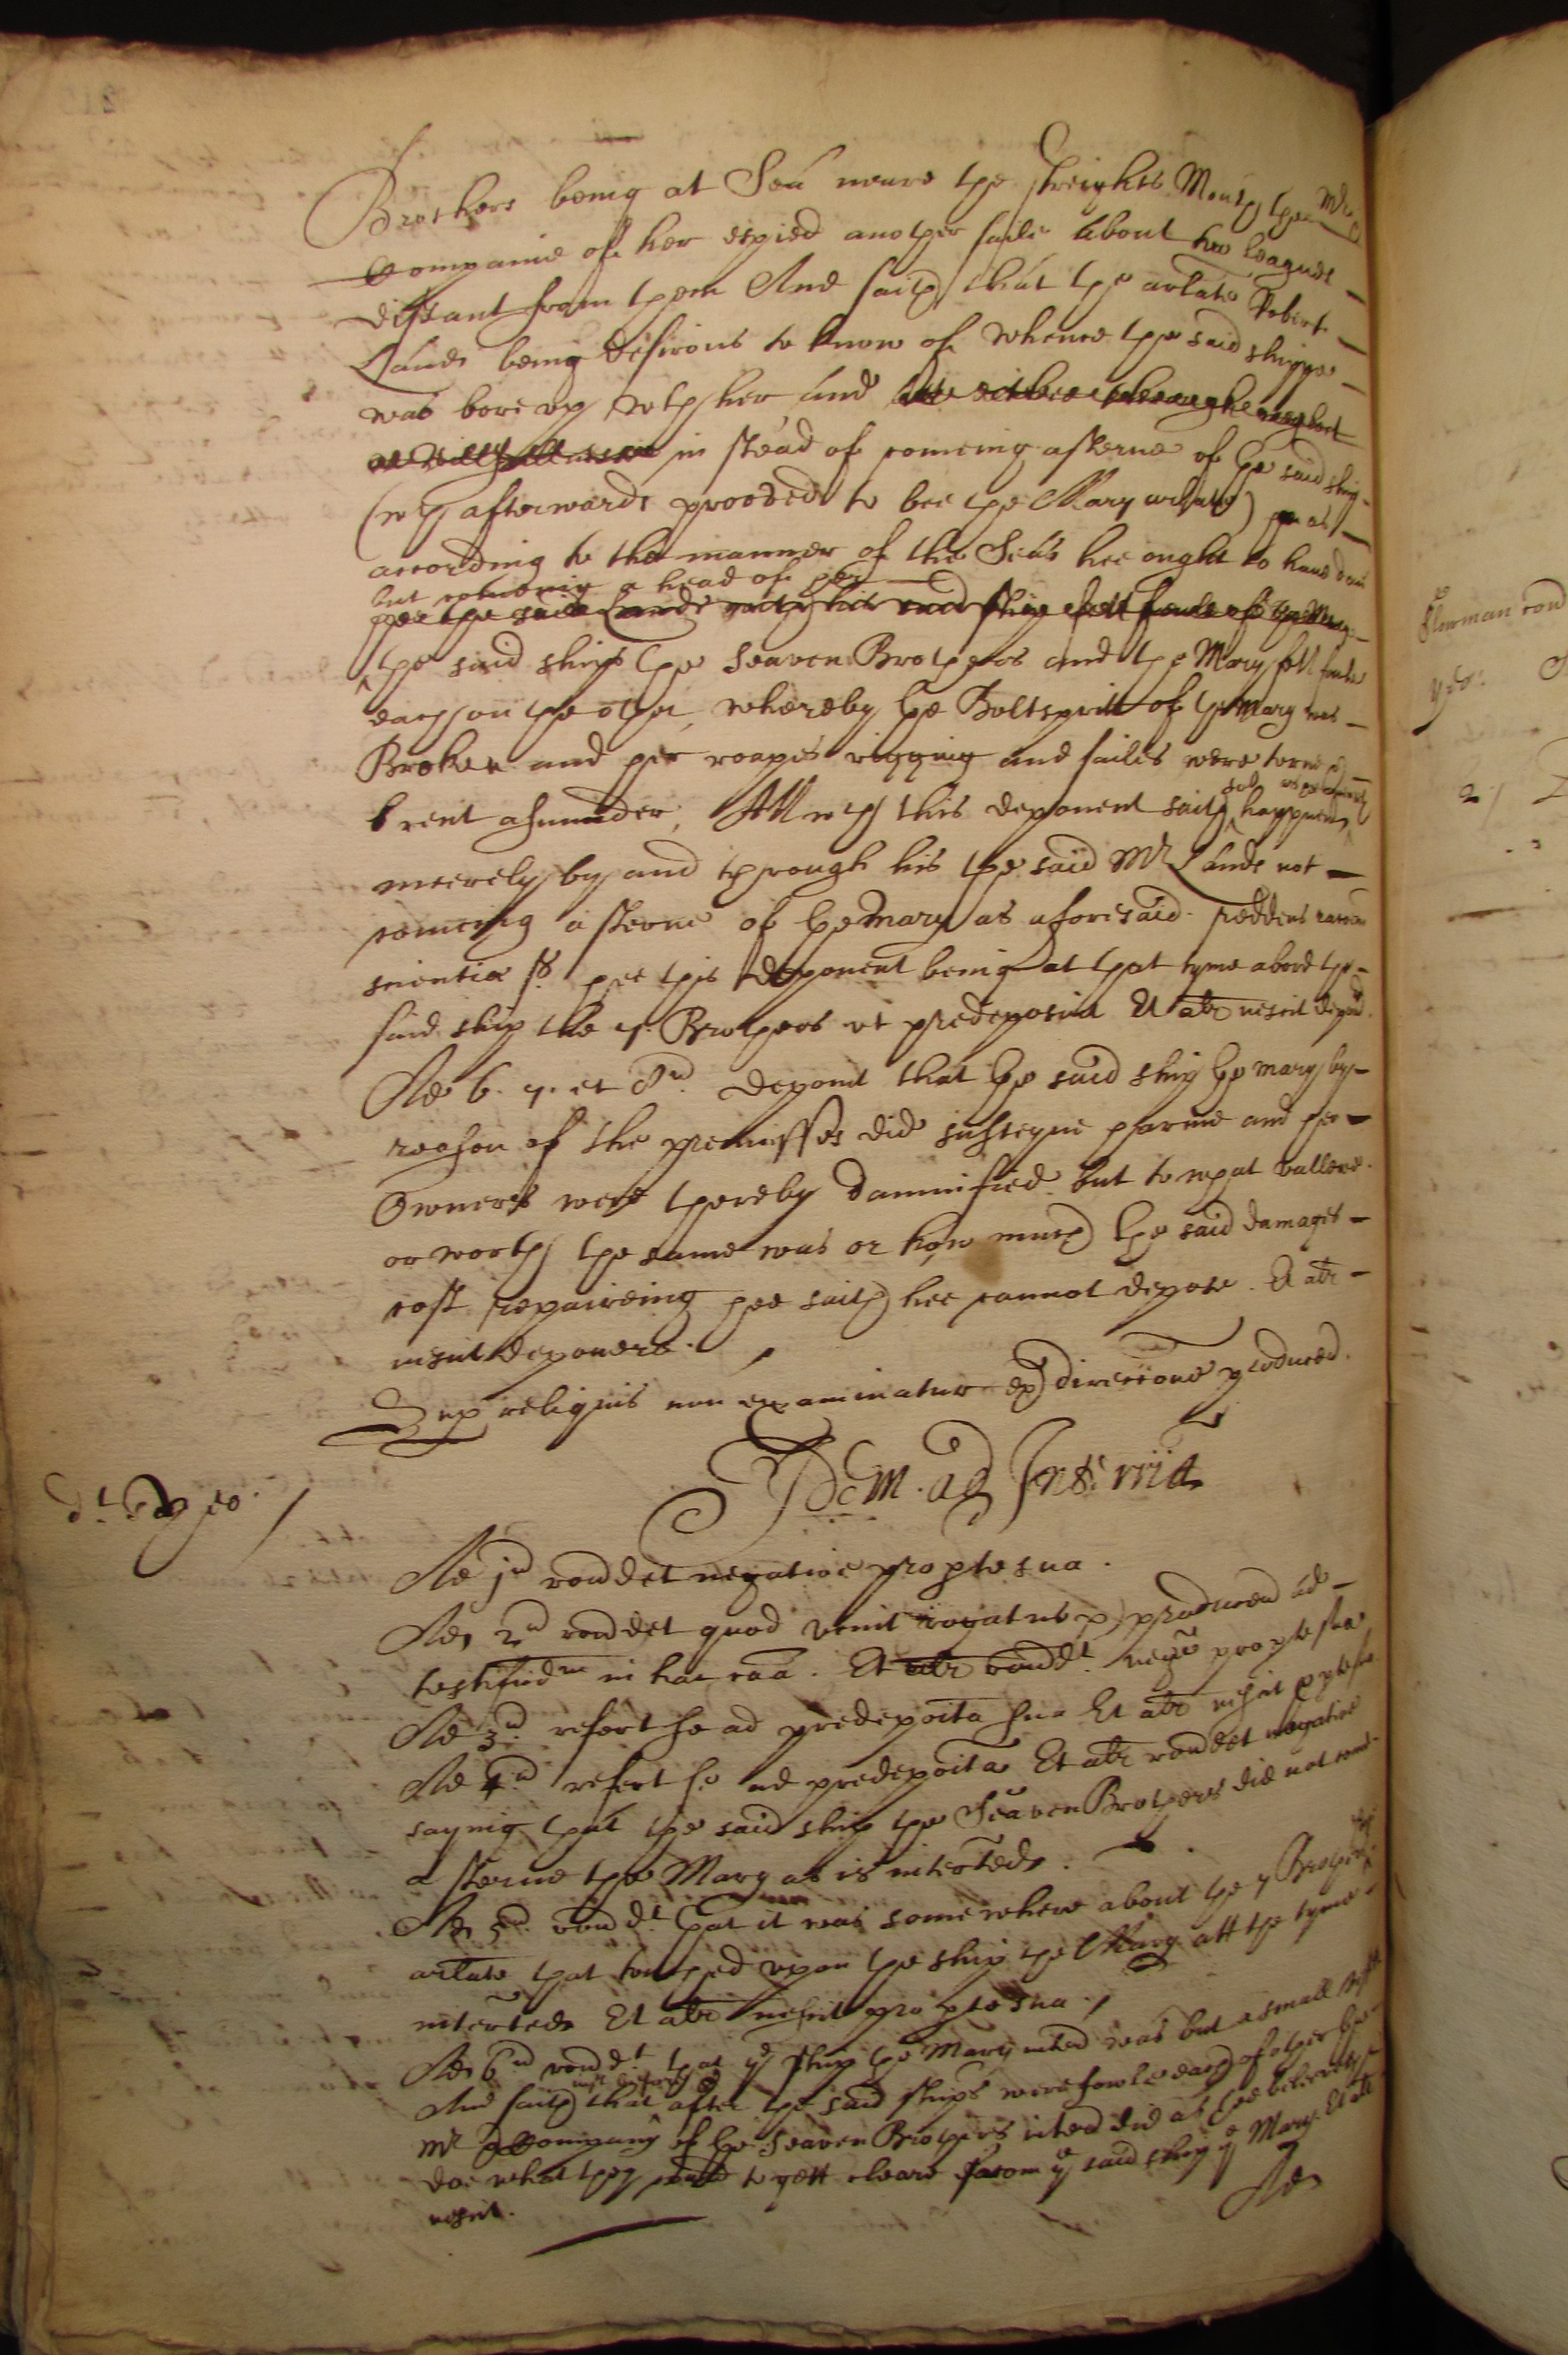 Brothers being at Sea neare the streights Mouth the Mr &
Companie of her espied another saile about two leagues
distant from them And saith that the arlate Robert
Lande being desirous to know of whence the said shippe
was bore vp wth her and hee either through neglect
or willfullnesse in stead of comeing asterne of the said ship
(wch afterwards prooved to bee the Mary arlate) as
according to the manner of the Seas hee ought to haue don
but comeing a head of her
hee the said Lande with his said ship fell foule of the Mary
the said ships the Seaven Brothers and the Mary fell foule
each on the other, whereby the Boltspritt of the Mary was
Broken and her roapes rigging and sailes were torne &
rent asunder, All wch this deponent saith happened
meerely by and through his the said Mr Lande not
comeing asterne of the Mary as aforesaid. reddens rationem
scientiæ s. hee this deponent being at that tyme abord the
said ship the 7. Brothers vt predeposuit Et alr nescit depon.
Ad 6. 7. et 8um. deponit that the said ship the Mary by
reason of the premisses did susteyne harme and her
Owners were thereby damnified but to what vallewe
or worth the same was or how much the said damages
cost repaireing hee saith hee cannot depose. Et alr
nescit deponere.
Sup reliquis non examinatur ex direccone producen.
Idem ad Interria
Ad jum rondet negative pro parte sua.
Ad 2um rondet quod venit rogatus p producen ad
testificdum in hac caa. Et alr rondet negve pro parte sua
Ad 3um. refert se ad predeposita sua Et alr nescit p parte sua
Ad 4um refert se ad predeposita Et alr rondet negative
sayinig that the said ship the Seaven Brothers did not come
a sterne the Mary as is interted.
Ad 5um. rondet that it was somewhere about the 7 Brothers
arlate that touched vpon the ship the Mary att the tyme
interted Et alr nescit pro parte sua.
Ad 6um rondet that ye ship the Mary inted was but a small
And saith that after the said ships were fowle each of other the
Mr & Company of the Seaven Brothers inted did as hee beleeveth
doe what they could to gett cleare from ye said ship ye Mary. Et alr
nescit.
Ad